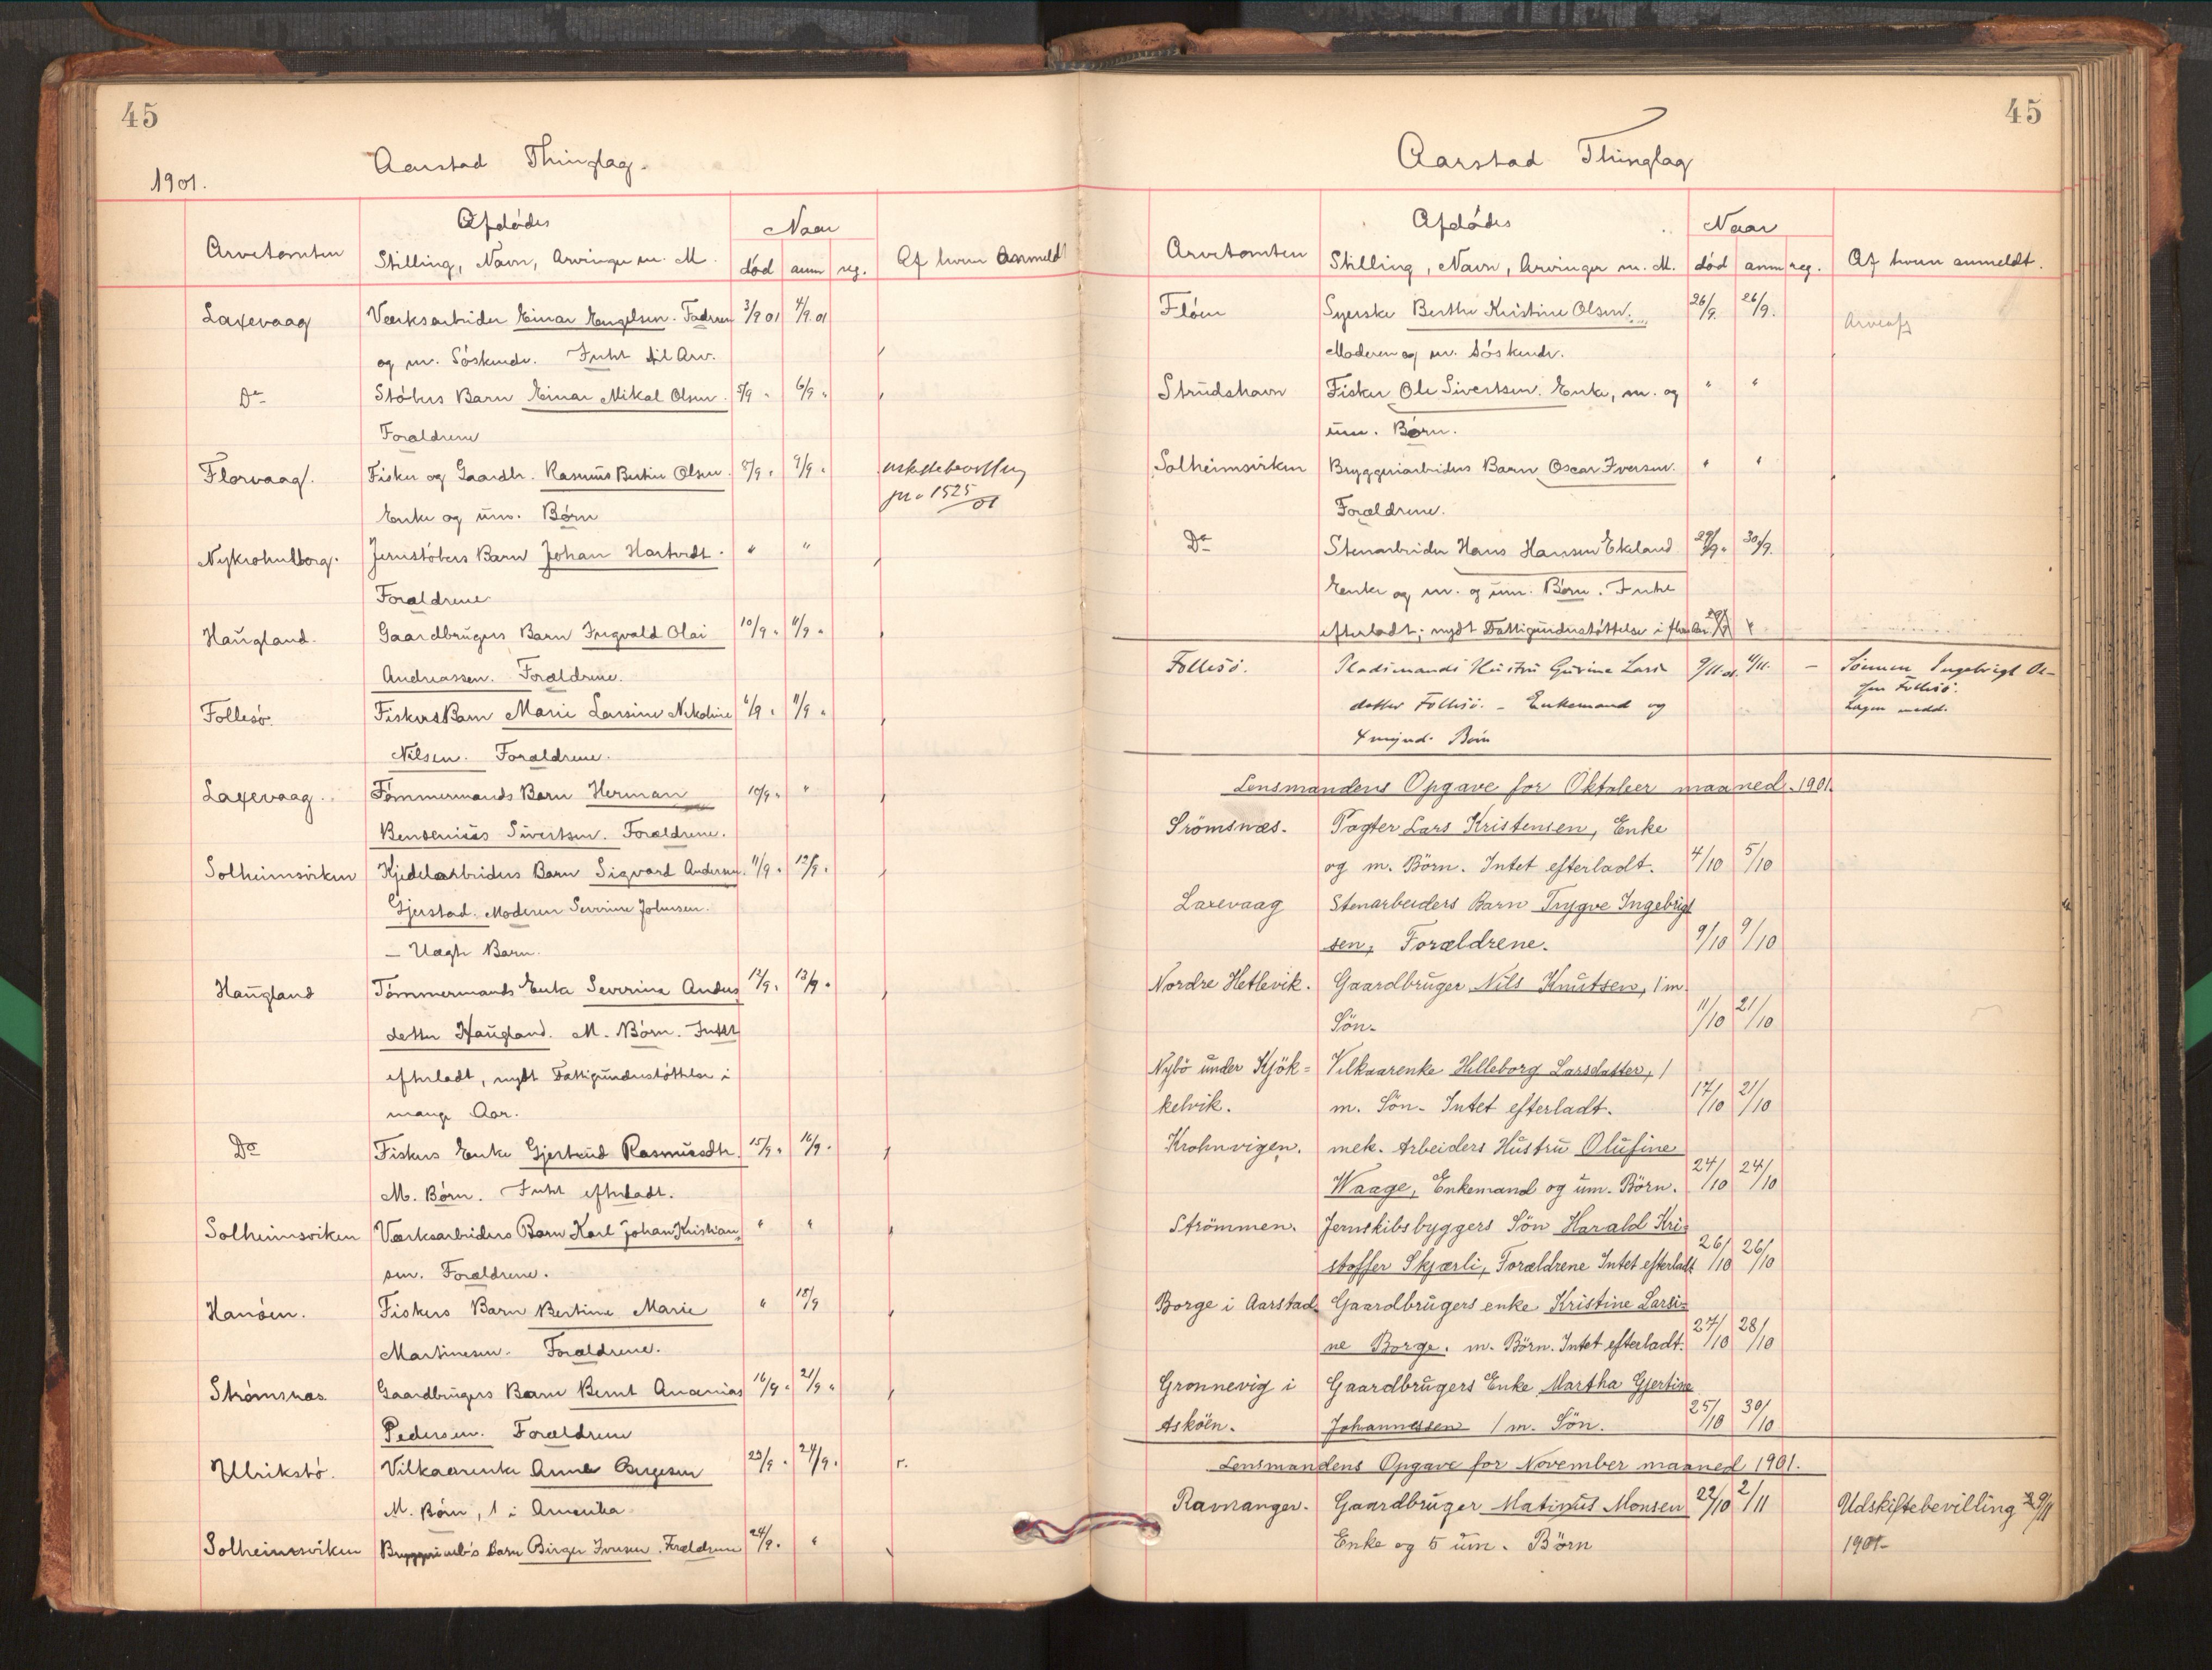 45
Aarstad Thinglag.
1901.
Afdødes
Naar
Arvetomten
Stilling, Navn, Arvinger m. M.
død anm reg.
Af hvem Anmeldt
Laxevaag Værksarbeider Einar Engelsen. Faderen 3/9 01 4/9 01
og m. Søskende. Intet til Arv.
Do Støbers Barn Einar Mikal Olsen. 5/9 " 6/9 "
Forældrene
Florvaag. Fisker og Gaardbr. Rasmus Bertin Olsen. 8/9 " 9/9 " uskiftebevilling
Enke og um. Børn
jn. 1525/01
Nykrohnborg. Jernstøbers Barn Johan Hartvedt. " "
Forældrene
Haugland. Gaardbrugers Barn Ingvald Olai 10/9 " 11/9 "
Andreassen. Forældrene.
Follesø. Fiskers Barn Marie Larsine Nikoline 6/9 " 11/9 "
Nilsen. Forældrene.
Laxevaag. Tømmermands Barn Herman 10/9 " "
Bendenius Sivertsen. Forældrene.
Solheimsviken Kjedelarbeiders Barn Sigvard Andersen 11/9 " 12/9 "
Gjerstad. Moderen Severine Johnsen.
– Uægte Barn.
Haugland Tømmermands Enke Severine Anders 12/9 " 13/9 "
datter Haugland. M. Børn. Intet
efterladt, nydt Fattigunderstøttelse i
mange Aar.
Do Fiskers Enke Gjertrud Rasmusdtr. 15/9 " 16/9 "
M. Børn. Intet efterladt.
Solheimsviken Værksarbeiders Barn Karl Johan Kristian " "
sen. Forældrene.
Hanøen. Fiskers Barn Bertine Marie " 18/9
Martinesen. Forældrene.
Strømsnæs Gaardbrugers Barn Bernt Ananias 16/9 " 21/9 "
Pedersen. Forældrene
Ulrikstø. Vilkaarenke Anna Børgesen 23/9 " 24/9 " r.
M. Børn, 1 i Amerika
Solheimsviken Bryggeriarb's Barn Birger Iversen. Forældrene 24/9 " "
45
Aarstad Thinglag
Afdødes
Naar
Arvetomten
Stilling, Navn, Arvinger m. M.
død anm reg.
Af hvem anmeldt.
Fløen Syerske Berthe Kristine Olsen. 26/9. 26/9.
Moderen og m. Søskende.
Strudshavn Fisker Ole Sivertsen. Enke, m. og " "
um. Børn.
Solheimsviken Bryggeriarbeiders Barn Oscar Iversen. " "
Forældrene.
Do Stenarbeider Hans Hansen Ekeland 29/9 " 30/9.
Enke og m. og um. Børn. Intet
efterladt; nydt Fattigunderstøttelse i flere Aar.
Follesø. Pladsmands Hustru Gurine Lars 9/11 01. 11/11. – Sønnen Ingebrigt Ol–
datter Follesø. – Enkemand og
sen Follesø.
4 mynd. Børn
Lensmandens Opgave for Oktober maaned 1901.
Srömsnæs. Pagter Lars Kristensen, Enke
og m. Börn. Intet efterladt. 4/10 5/10
Laxevaag Stenarbeiders Barn Trygve Ingebrigt
sen, Forældrene. 9/10 9/10
Nordre Hetlevik. Gaardbruger Nils Knutsen, 1 m.
Sön. 11/10 21/10
Nybö under Kjök= Vilkaarenke Hilleborg Larsdatter, 1
kelvik. m. Sön. Intet efterladt. 17/10 21/10
Krohnvigen. mek. Arbeiders Hustru Olufine
Waage, Enkemand og um. Börn. 24/10 24/10
Strömmen. Jernskibsbyggers Sön Harald Kri=
stoffer Skjærli, Forældrene Intet efterladt 26/10 26/10
Borge i Aarstad. Gaardbrugers enke Kristine Larsi=
ne Borge. m. Börn. Intet efterladt. 27/10 28/10
Gronnevig i Gaardbrugers Enke Martha Gjertine
Asköen. Johannessen 1 m. Sön. 25/10 30/10
Lensmandens Opgave for November maaned 1901.
Ramanger. Gaardbruger Matinus Monsen 22/10 2/11 Udskiftebevilling 29/11
Enke og 5 um. Börn
1901–